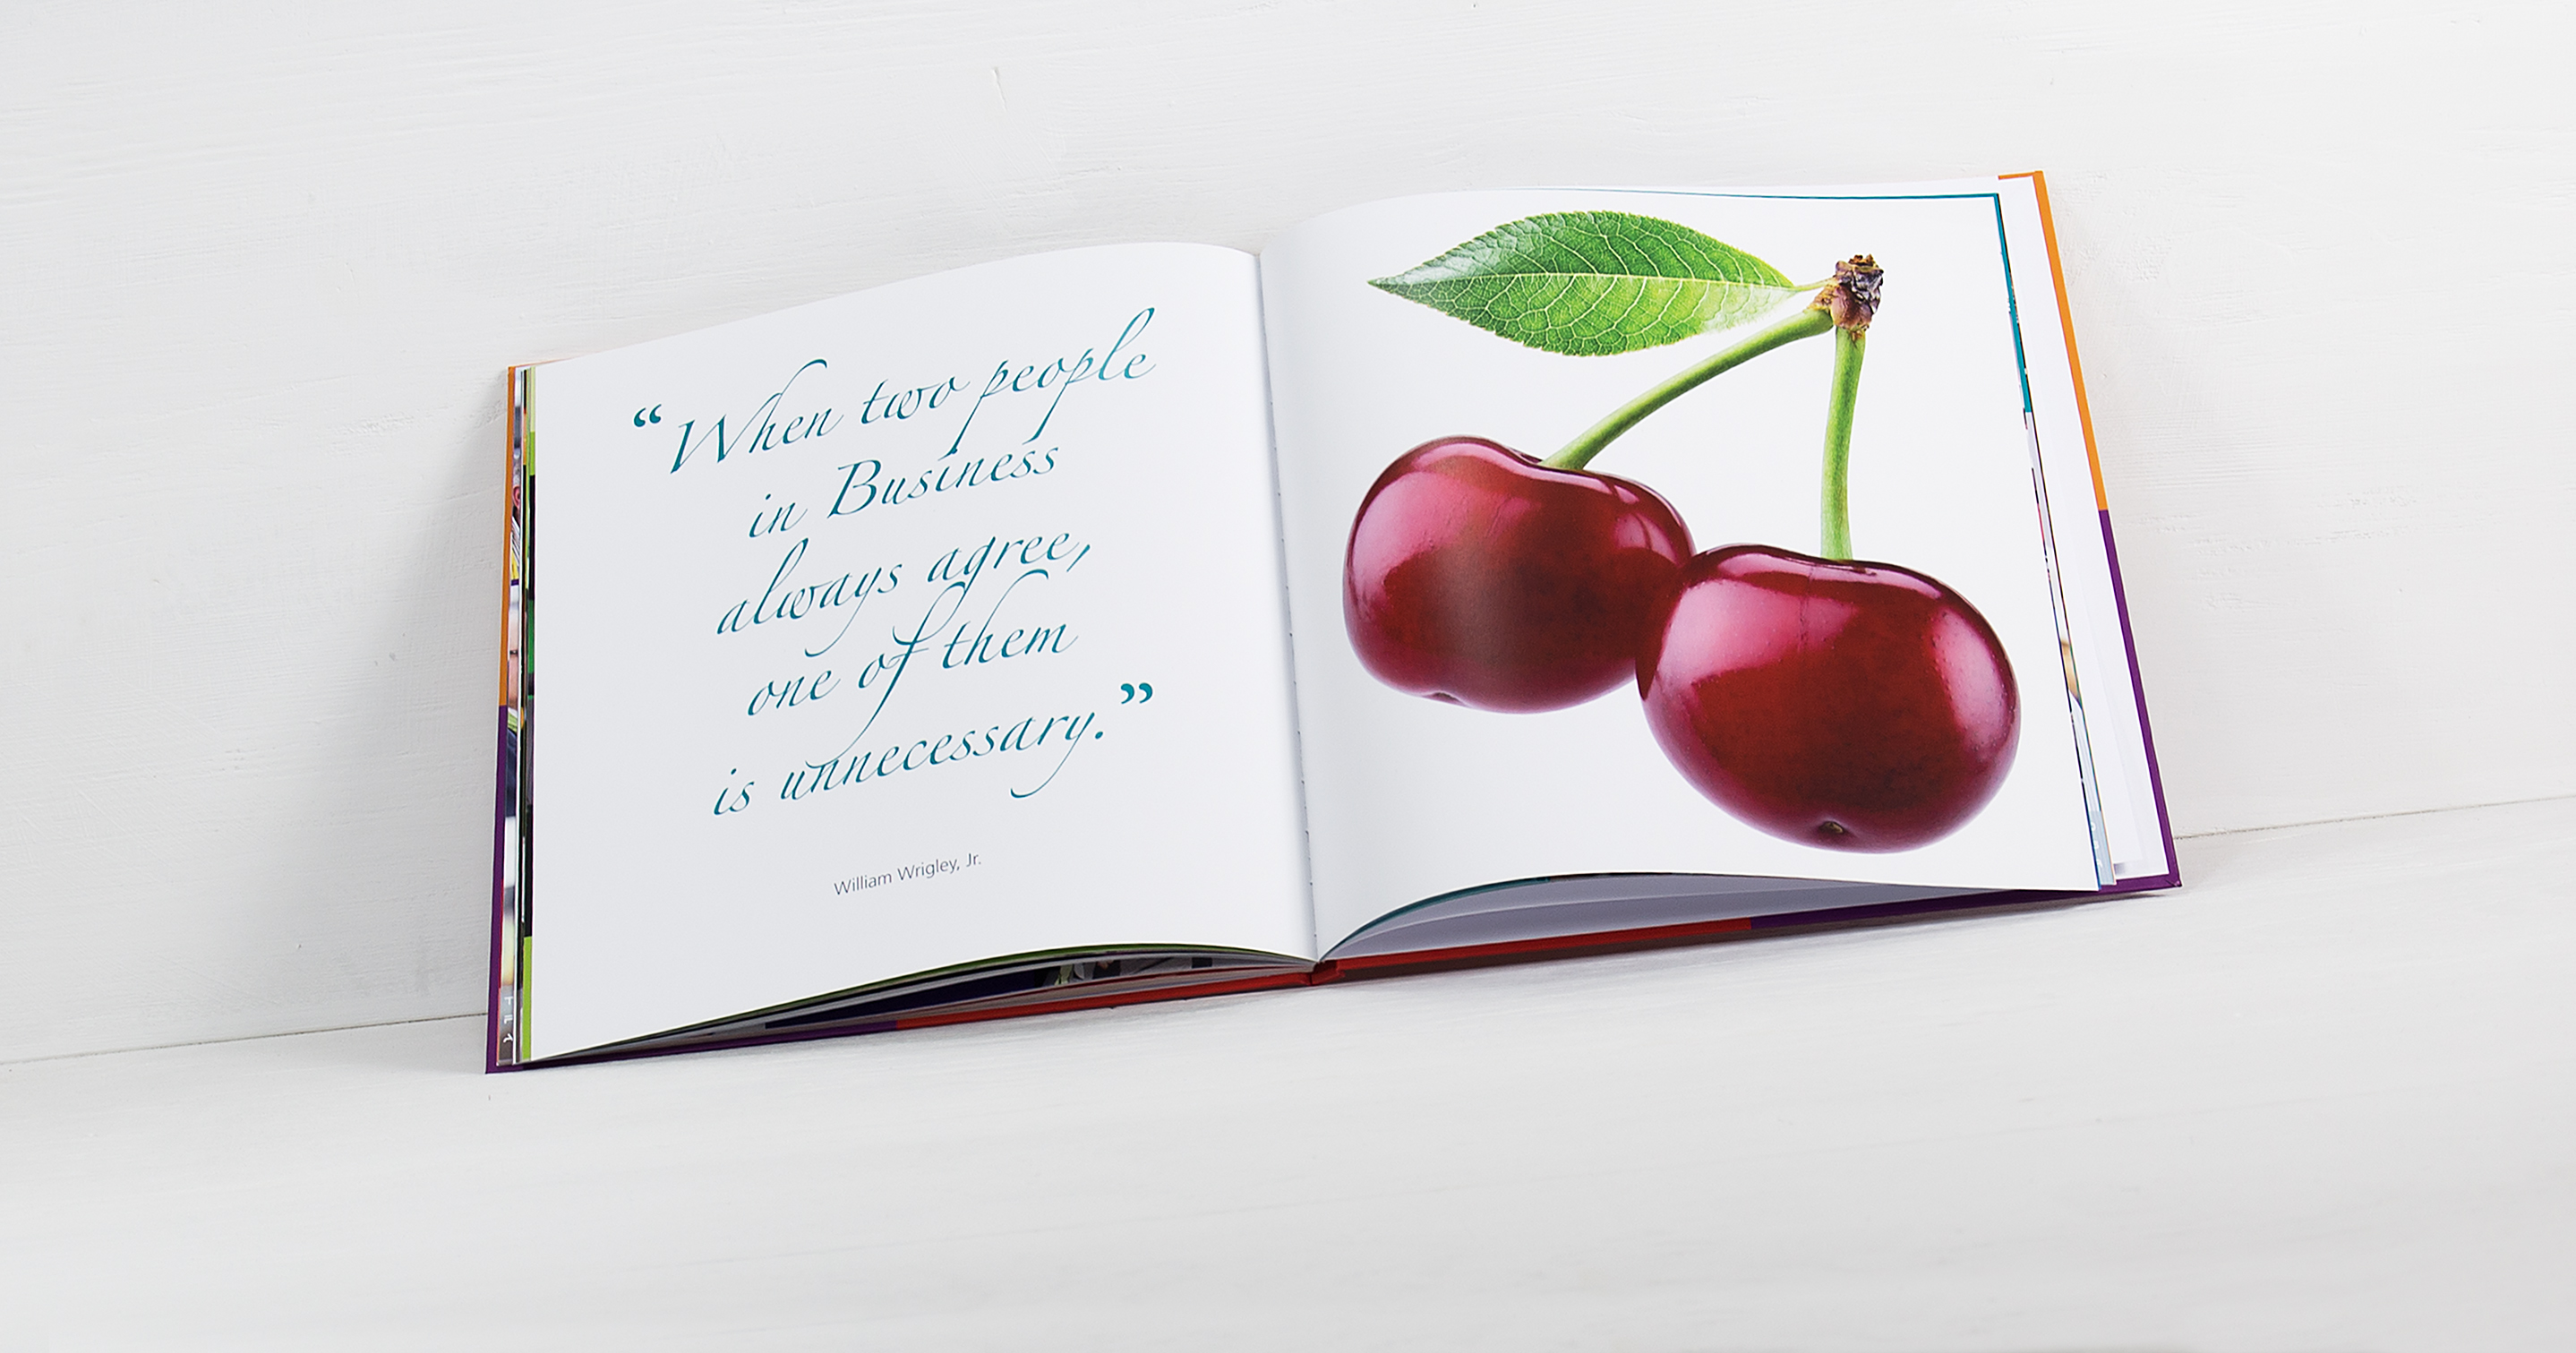 “When two people
in Business
always agree,
one of them
is unnecessary.”
William Wrigley, Jr.